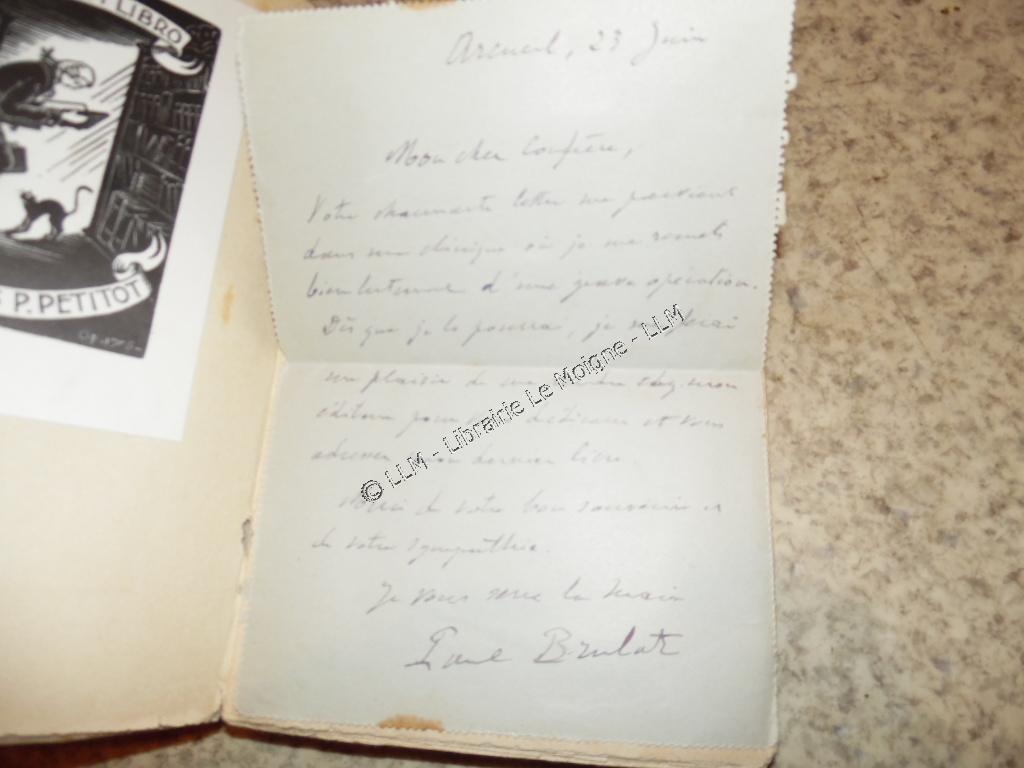 LIBRO
P. PETITOT
Arcueil, 23 Juin
Mon cher Confrère,
Votre charmante lettre me parvient
dans une clinique où je me remets
bien lentement d'une grave opération.
Dès que je le pourrai, je me ferai
un plaisir de me rendre chez mon
éditeur pour vous dédicacer et vous
adresser mon dernier livre.
Merci de votre bon souvenir et
de votre sympathie.
Je vous serre la main
Paul Brulat
© LLM - Librairie Le Moigne - LLM